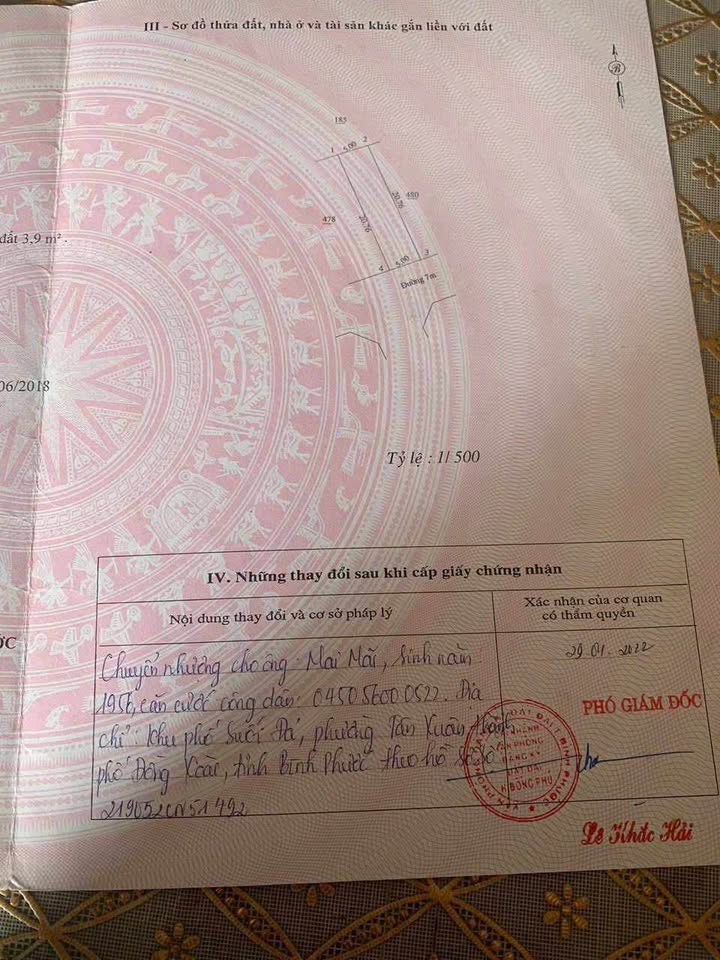 III - Sơ đồ thửa đất, nhà ở và tài sản khác gắn liền với đất
B
185
1 5,00 2
20,76 480
478 20,76
đất 3,9 m².
4 5,00 3
Đường 7m
06/2018
Tỷ lệ : 1/ 500
IV. Những thay đổi sau khi cấp giấy chứng nhận
Nội dung thay đổi và cơ sở pháp lý
Xác nhận của cơ quan
có thẩm quyền
Chuyển nhượng cho ông: Mai Mãi, sinh năm
1956, căn cước công dân: 045056000522. Địa
chỉ: khu phố Suối Đá, phường Tân Xuân, thành
phố Đồng Xoài, tỉnh Bình Phước theo hồ sơ số
219052CN51492
29.01.2022
PHÓ GIÁM ĐỐC
VĂN PHÒNG
ĐĂNG KÝ
ĐẤT ĐAI
H. ĐỒNG PHÚ
Lê Khắc Hải